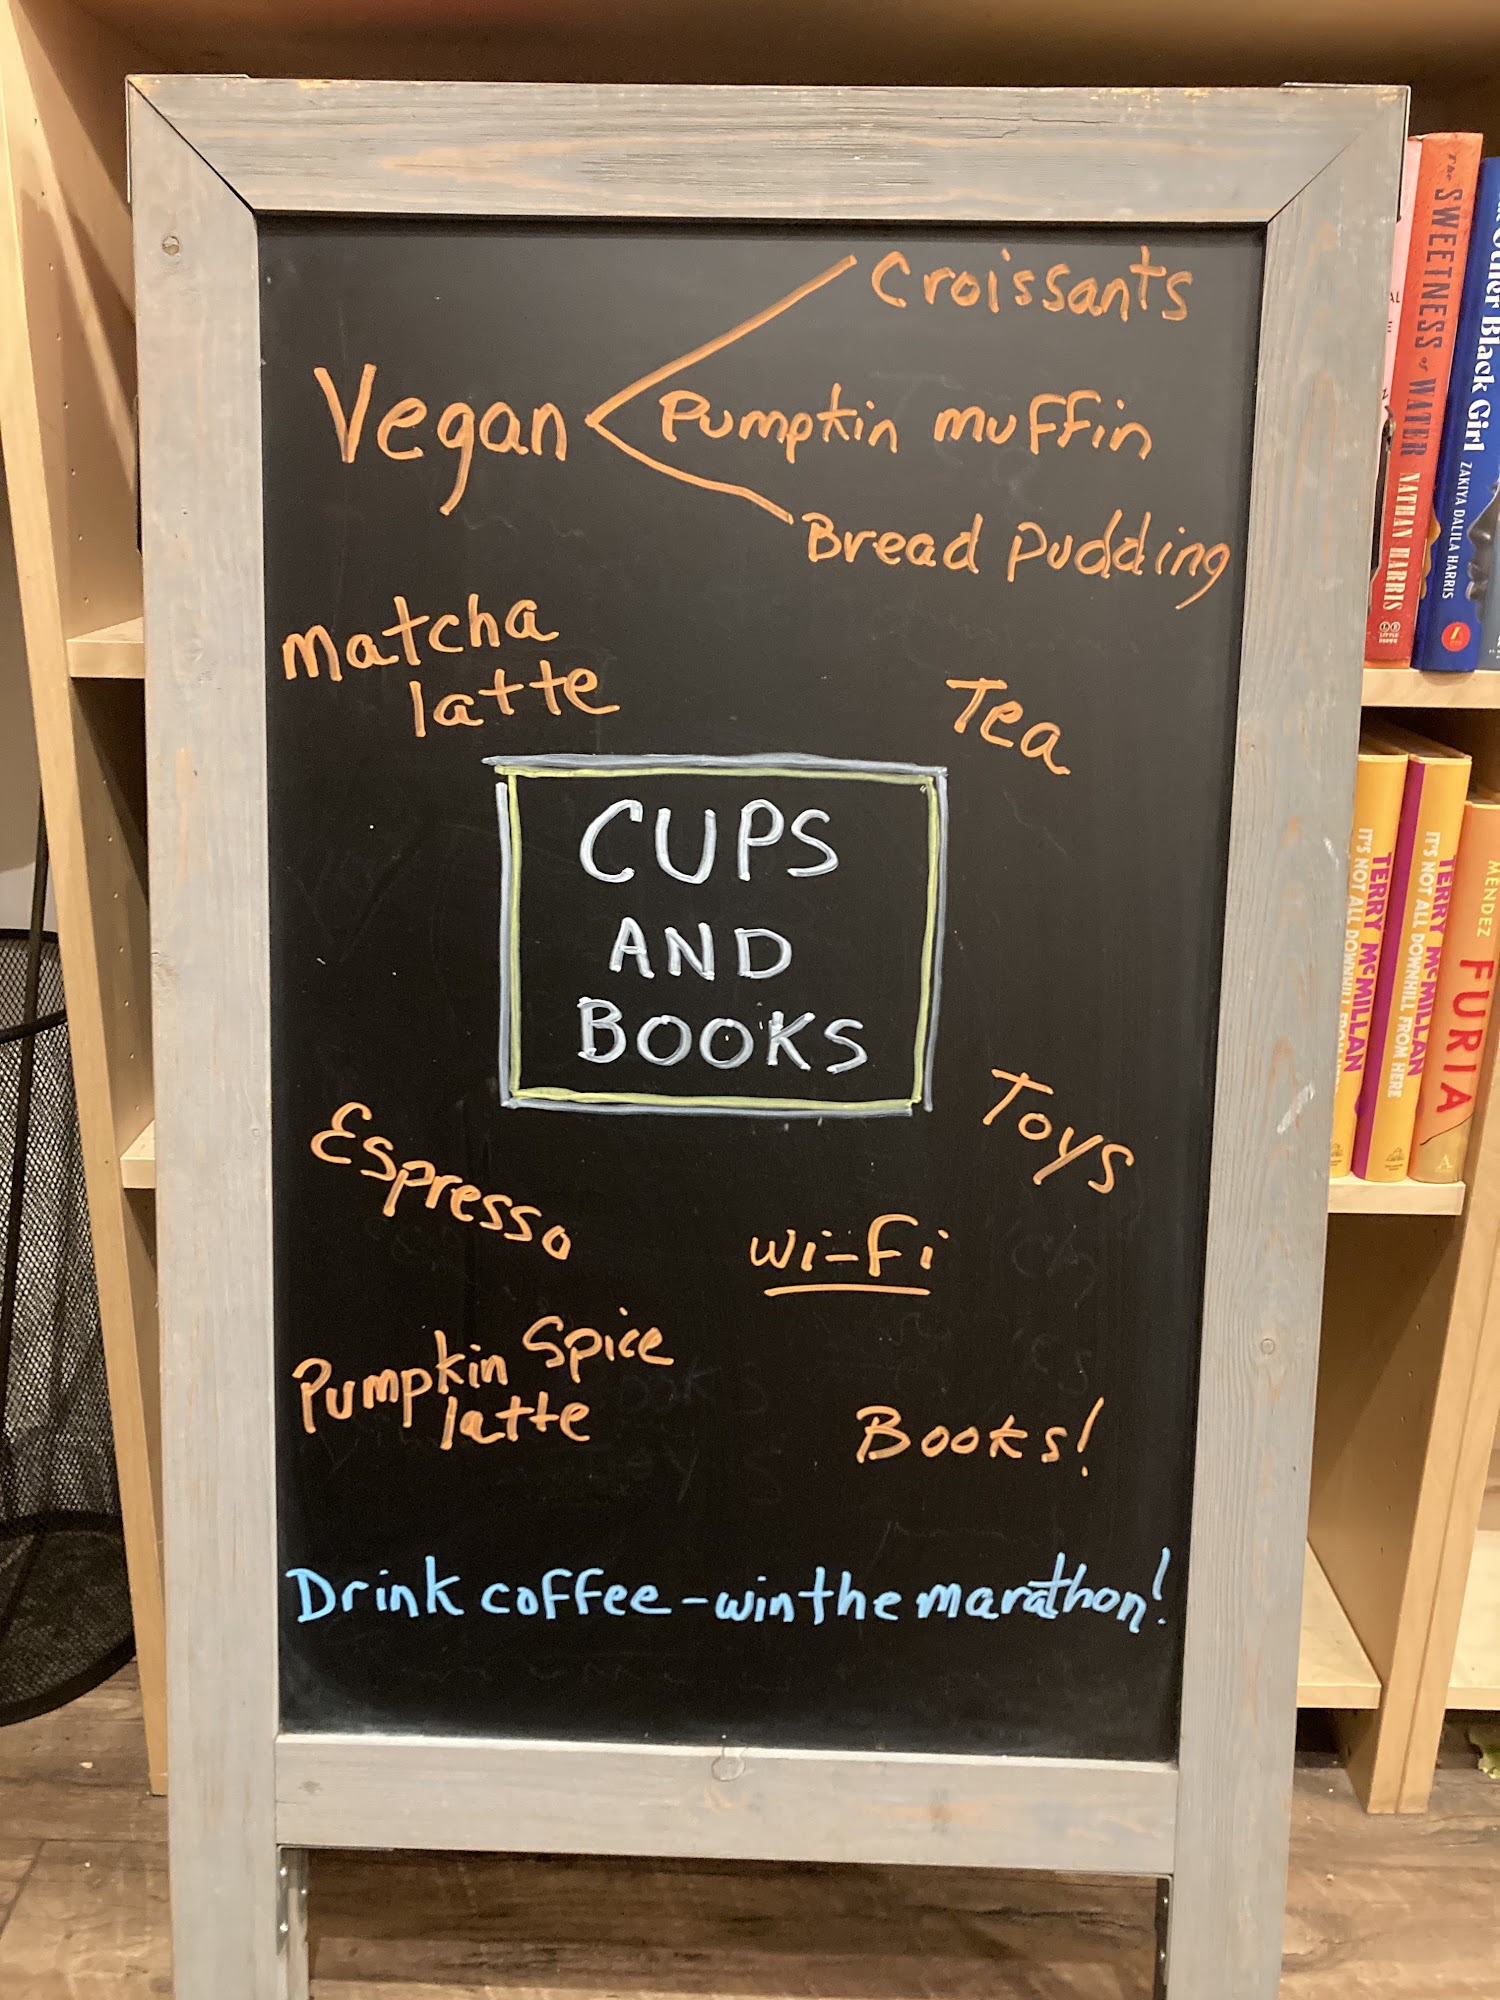 Croissants
Vegan
Pumpkin muffin
Bread pudding
Matcha
latte
Tea
CUPS
AND
BOOKS
Espresso
Toys
Wi-Fi
Pumpkin Spice
latte
Books!
Drink coffee - win the marathon!
The SWEETNESS of WATER NATHAN HARRIS
Other Black Girl ZAKIYA DALILA HARRIS
TERRY McMILLAN
IT'S NOT ALL DOWNHILL FROM
TERRY McMILLAN
IT'S NOT ALL DOWNHILL FROM HERE
MENDEZ FURIA